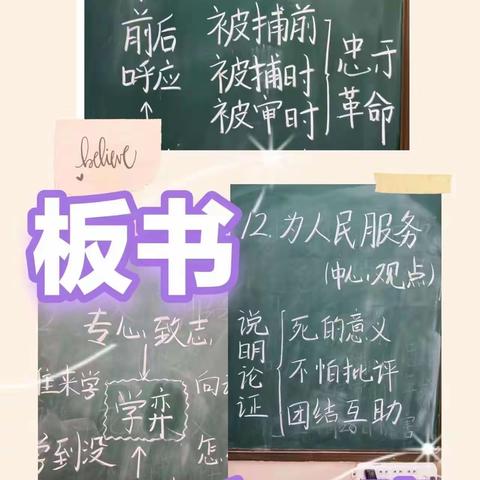 前后 被捕前
呼应 被捕时 忠于
↑ 被审时 革命
believe
板书
12.为人民服务
(中心观点)
说明论证
死的意义
不怕批评
团结互助
专心致志
往来学
学弈
学到没